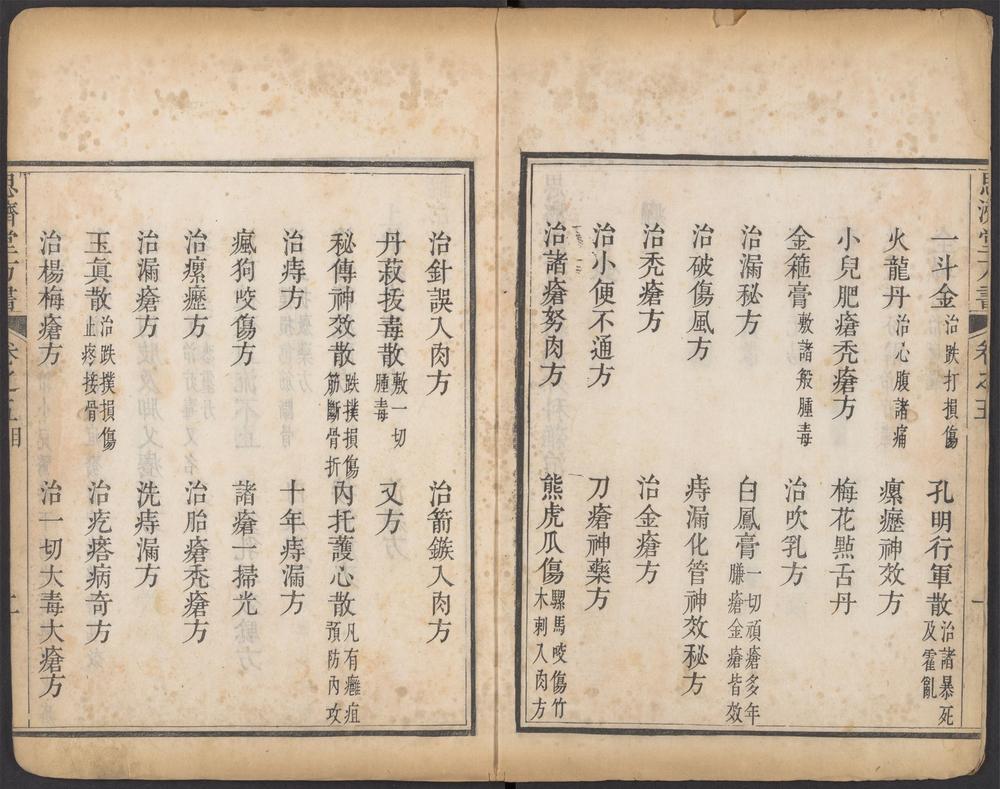 一斗金治跌打損傷 孔明行軍散治諸暴死及霍亂
火龍丹治心腹諸痛 瘰癧神效方
小兒肥瘡禿瘡方 梅花點舌丹
金箍膏敷諸般腫毒 治吹乳方
治漏秘方 白鳳膏一切頑瘡多年臁瘡金瘡皆效
治破傷風方 痔漏化管神效秘方
治禿瘡方 治金瘡方
治小便不通方 刀瘡神藥方
治諸瘡努肉方 熊虎瓜傷騾馬咬傷竹木刺入肉方
治針誤入肉方 治箭鏃入肉方
丹菽拔毒散敷一切腫毒 又方
秘傳神效散跌撲損傷筋斷骨折 內托護心散凡有癰疽預防內攻
治痔方 十年痔漏方
瘋狗咬傷方 諸瘡一掃光
治瘰癧方 治胎瘡禿瘡方
治漏瘡方 洗痔漏方
玉眞散治跌撲損傷止疼接骨 治疙瘩病奇方
治楊梅瘡方 治一切大毒大瘡方
思濟堂方書 卷之五目 二